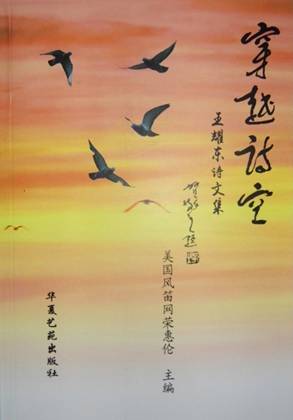 穿越诗空
王耀东诗文集
美国风笛网荣惠伦 主编
华夏艺苑出版社